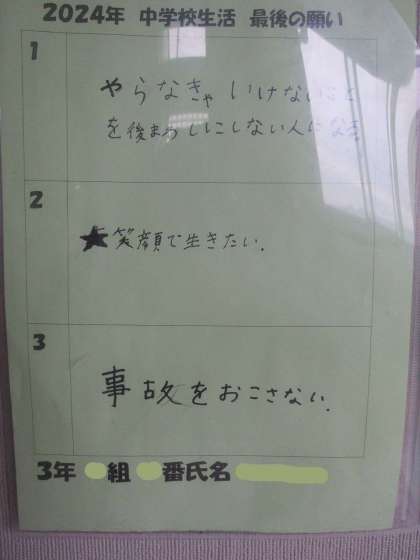 2024年 中学校生活 最後の願い
1
やらなきゃいけないこと
を後まわしにしない人になる
2
★笑顔で生きたい.
3
事故をおこさない.
3年 組 番氏名